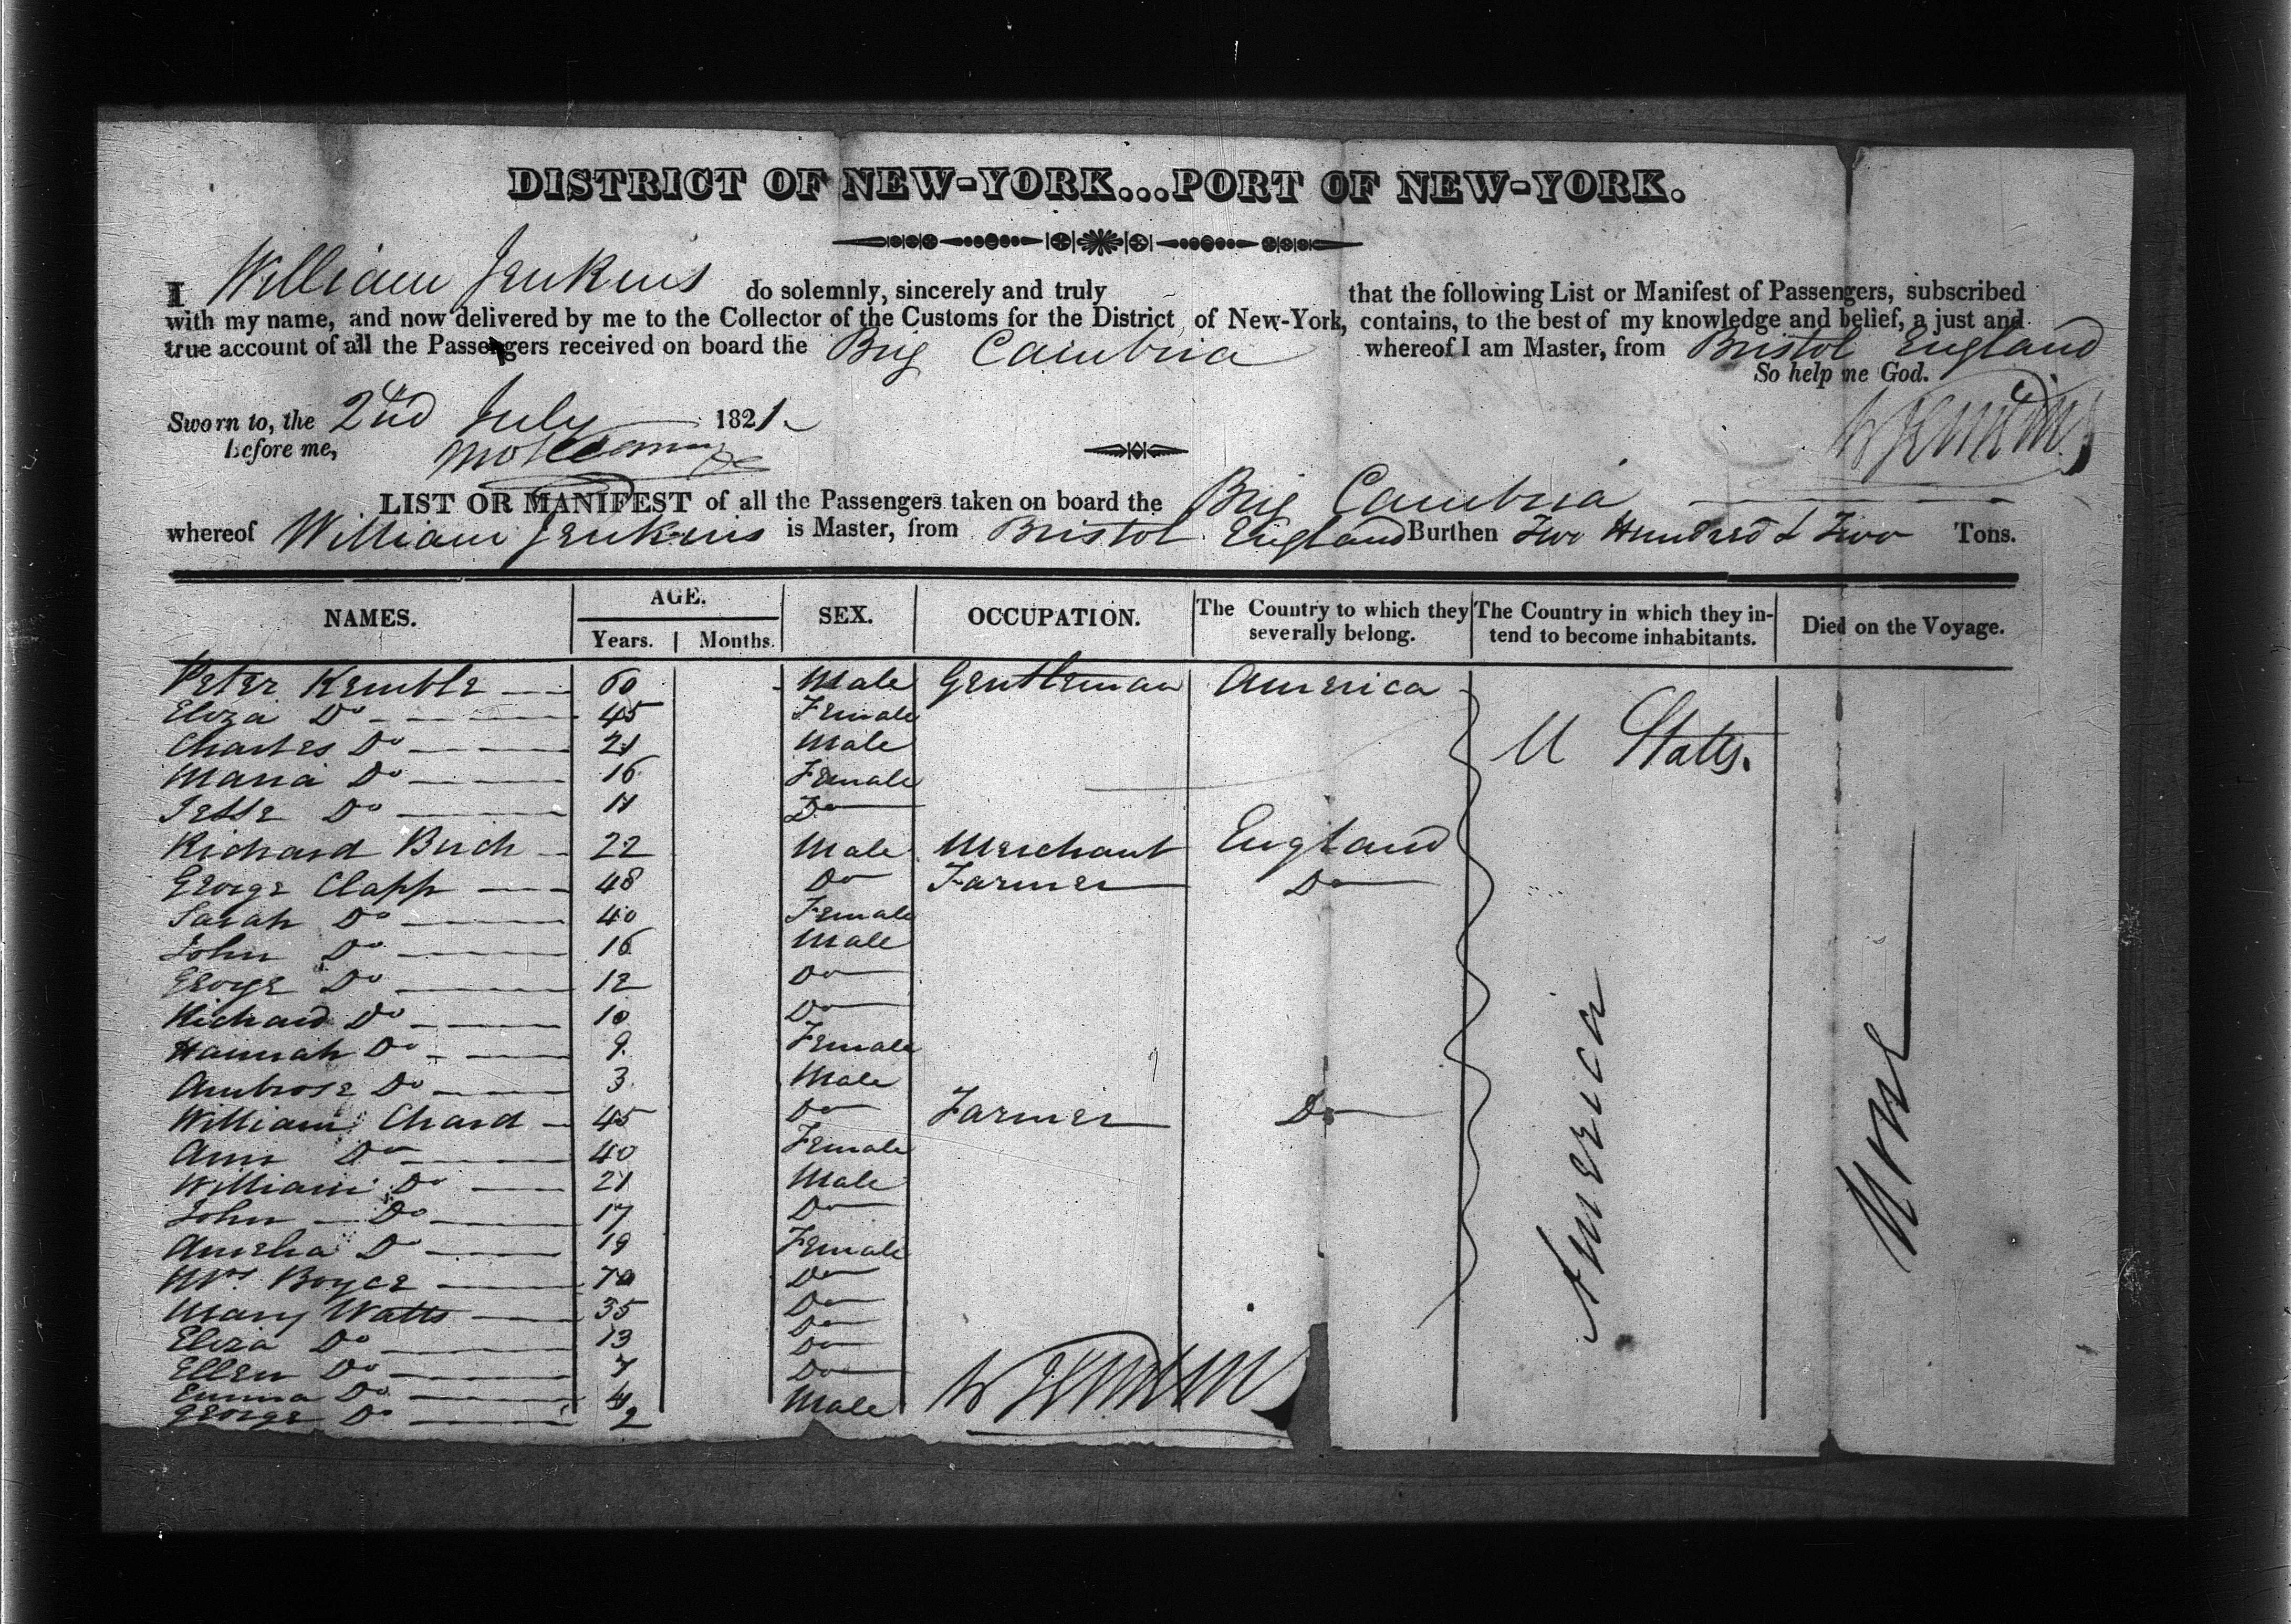 DISTRICT OF NEW-YORK...PORT OF NEW-YORK.
I William Jenkins do solemnly, sincerely and truly that the following List or Manifest of Passengers, subscribed
with my name, and now delivered by me to the Collector of the Customs for the District of New-York, contains, to the best of my knowledge and belief, a just and
true account of all the Passengers received on board the Brig Cambria whereof I am Master, from Bristol England
So help me God.
Sworn to, the 2nd July 1821.
Before me,
W Jenkins
LIST OR MANIFEST of all the Passengers taken on board the Brig Cambria
whereof William Jenkins is Master, from Bristol England Burthen Two Hundred & Two Tons.
NAMES. AGE. SEX. OCCUPATION. The Country to which they severally belong. The Country in which they intend to become inhabitants. Died on the Voyage.
Years. Months.
Peter Kemble 60 Male Gentleman America
Eliza Do 45 Female
Charles Do 21 Male
U States.
Maria Do 16 Female
Jesse Do 11 Do
Richard Buch 22 Male Merchant England
George Clapp 48 Do Farmer Do
Sarah Do 40 Female
John Do 16 Male
George Do 12 Do
Richard Do 10 Do
Hannah Do 9 Female
Ambrose Do 3 Male
William Chard 45 Do Farmer Do
Ann Do 40 Female
William Do 21 Male
John Do 17 Do
Amelia Do 19 Female
Mrs. Boyce 70 Do
Mary Watts 35 Do
Eliza Do 13 Do
Ellen Do 7 Do
Emma Do 4 Do
George Do 2 Male
America
None
W Jenkins